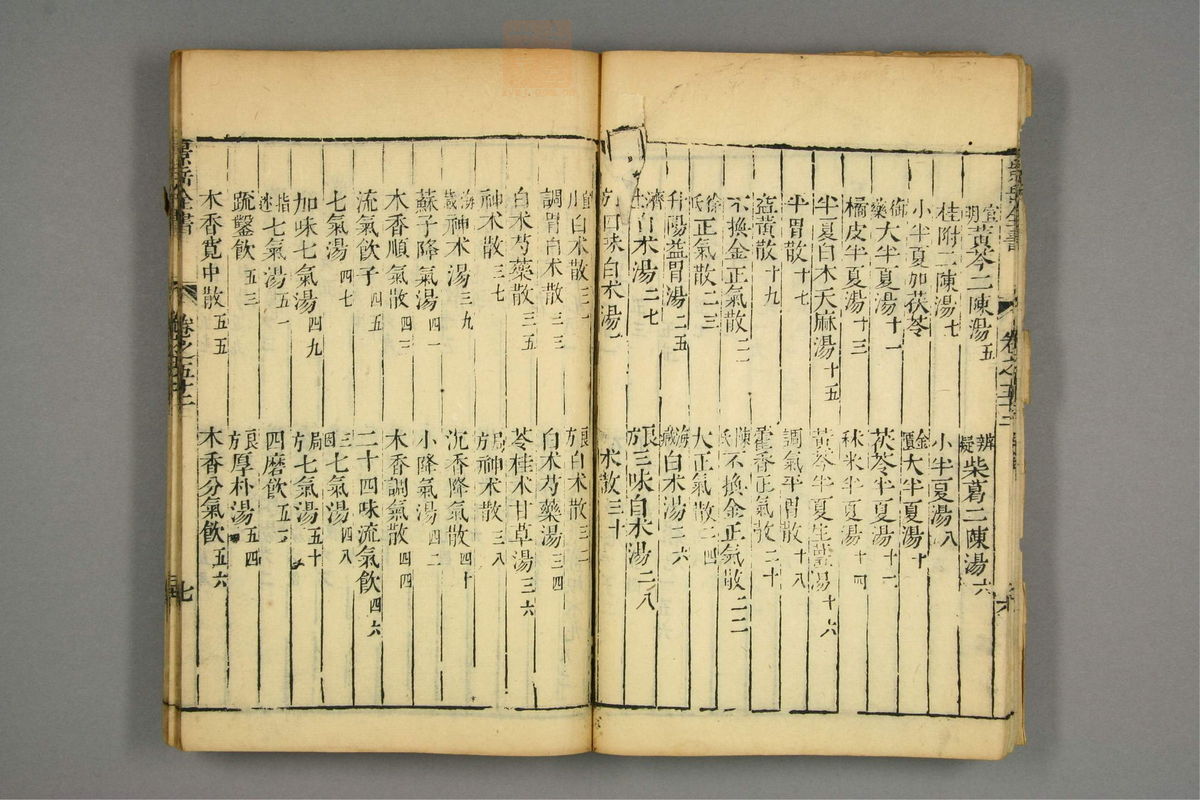 景岳全書
卷之五十三
六
宣明黃芩二陳湯五　辨疑柴葛二陳湯六
桂附二陳湯七　小半夏湯八
小半夏加茯苓　金匱大半夏湯十
衛藥大半夏湯十一　茯苓半夏湯十二
橘皮半夏湯十三　秫米半夏湯十四
半夏白术天麻湯十五　黃芩半夏生薑湯十六
平胃散十七　調氣平胃散十八
黃散十九　藿香正氣散二十
不換金正氣散二一　陳氏不換金正氣散二二
徐氏正氣散二三　大正氣散二四
升陽益胃湯二五　海藏白术湯二六
濟生白术湯二七　良方三味白术湯二八
四味白术湯　术散三十
官白术散三一　良方白术散三二
調胃白术散三三　白术芍藥湯三四
白术芍藥散三五　苓桂术甘草湯三六
神术散三七　局方神术散三八
海藏神术湯三九　沉香降氣散四十
蘇子降氣湯四一　小降氣湯四二
木香順氣散四三　木香調氣散四四
流氣飲子四五　二十四味流氣飲四六
七氣湯四七　三因七氣湯四八
加味七氣湯四九　局方七氣湯五十
指迷七氣湯五一　四磨飲五二
疏鑿飲五三　良方厚朴湯五四
木香寬中散五五　木香分氣飲五六
景岳全書
卷之五十三
七